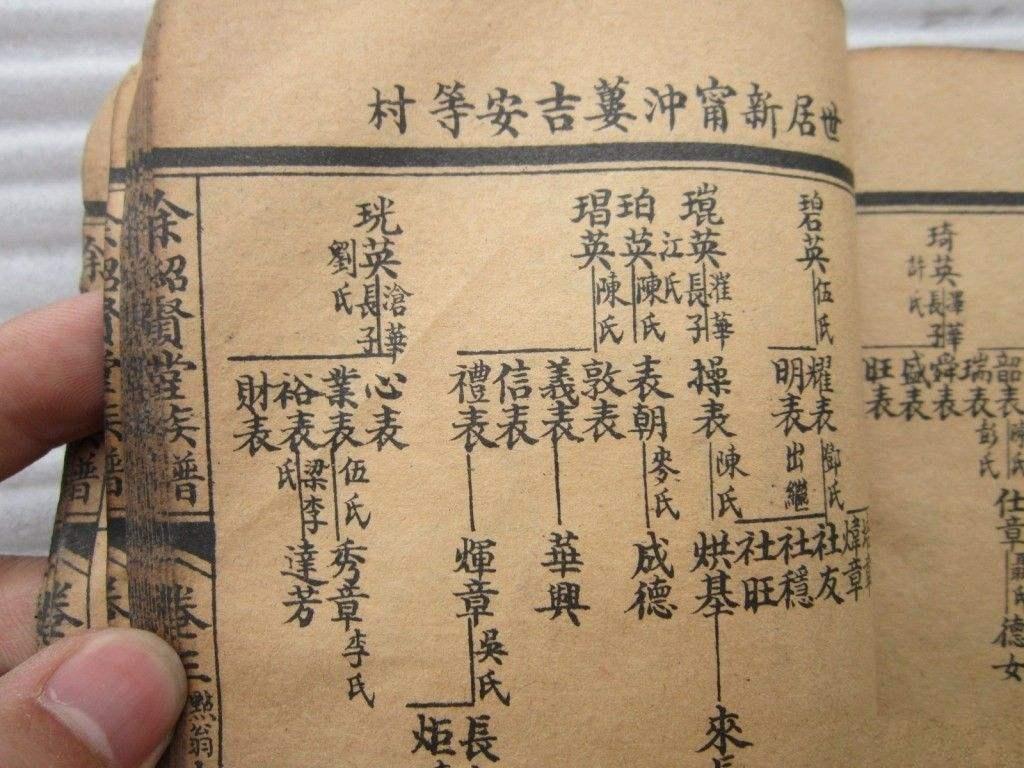 世居新甯沖蔞吉安等村
琦英
澤華長子
許氏
韶表
陳氏
瑞表
彭氏
舜表
盛表
旺表
仕章
德女
煒章
碧英
伍氏
耀表
鄧氏
明表
出繼
社友
社穩
社旺
琨英
灌華長子
江氏
操表
陳氏
烘基
來長
珀英
陳氏
表朝
麥氏
成德
琩英
陳氏
敦表
義表
信表
禮表
華興
輝章
吳氏
長
炬
珖英
滄華長子
劉氏
心表
業表
伍氏
裕表
梁李氏
財表
秀章
李氏
達芳
余紹賢堂族譜
卷三
點翁